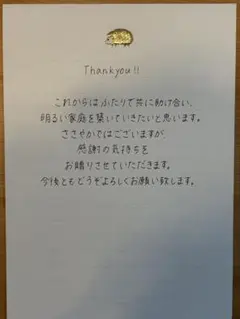 Thankyou!!
これからはふたりで共に助け合い、
明るい家庭を築いていきたいと思います。
ささやかではございますが、
感謝の気持ちを
お贈りさせていただきます。
今後ともどうぞよろしくお願い致します。